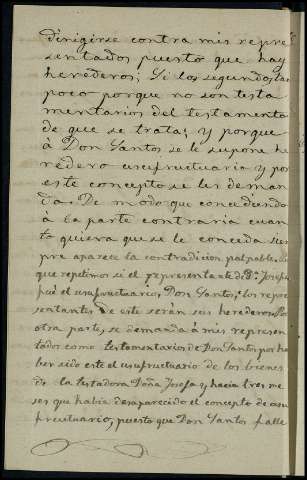 dirigirse contra mis repre
sentados puesto que hay
herederos; Si los segundos tam
poco porque no son testa
mentarios del testamento
de que se trata; y porque
à Don Santos se le supone he
redero usufructuario y por
este concepto se les deman
da. De modo que concediendo
à la parte contraria cuan
to quiera que se le conceda siem
pre aparece la contradicion palpable. Por
que repetimos si el representante de Dª Josefa
fué el usufructuario, Don Santos, los repre
sentantes de este serán sus herederos. Por
otra parte, se demanda à mis represen
tados como testamentarios de Don Santos por ha
ber sido este el usufructuario de los bienes
de la testadora Doña Josefa y hacia tres me
ses que habia desaparecido el concepto de usu
fructuario, puesto que Don Santos falle